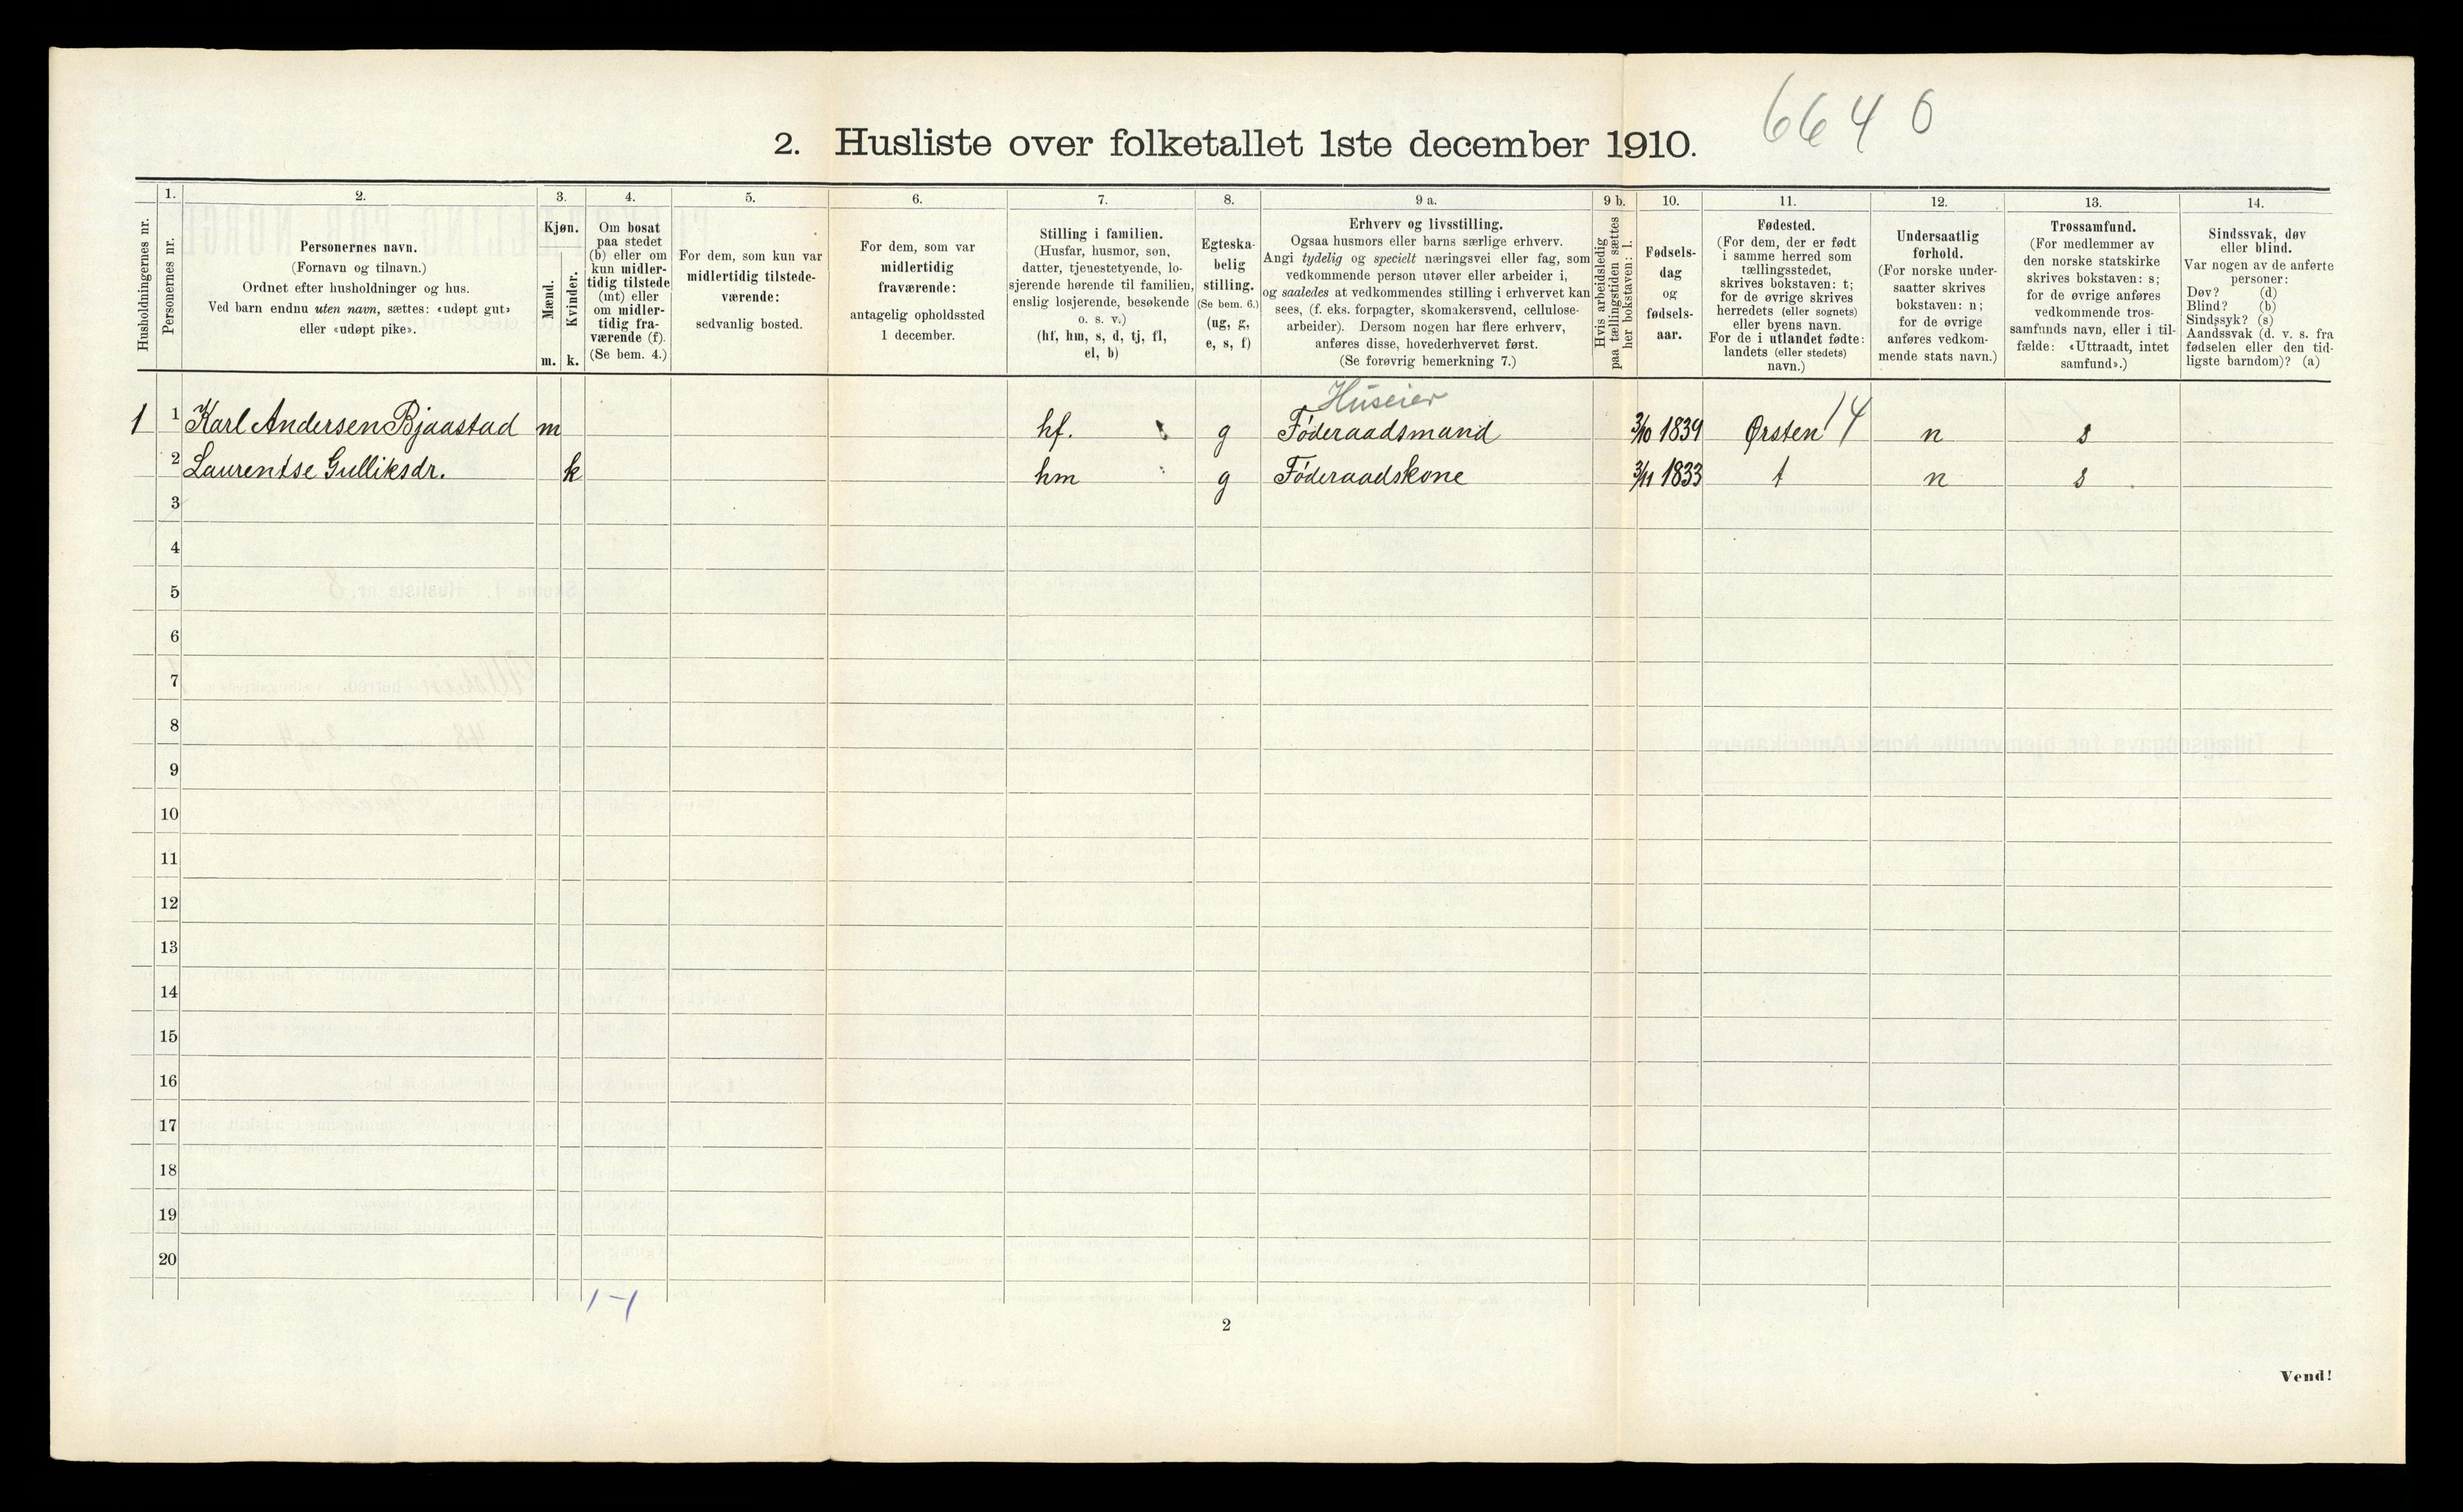 6640
2. Husliste over folketallet 1ste december 1910.
Husholdningernes nr.
1.
Personernes nr.
2.
Personernes navn.
(Fornavn og tilnavn.)
Ordnet efter husholdninger og hus.
Ved barn endnu uten navn, sættes: «udøpt gut»
eller «udøpt pike».
3.
Kjøn.
Mænd.
m.
Kvinder.
k.
4.
Om bosat
paa stedet
(b) eller om
kun midler-
tidig tilstede
(mt) eller
om midler-
tidig fra-
værende (f).
(Se bem. 4.)
5.
For dem, som kun var
midlertidig tilstede-
værende:
sedvanlig bosted.
6.
For dem, som var
midlertidig
fraværende:
antagelig opholdssted
1 december.
7.
Stilling i familien.
(Husfar, husmor, søn,
datter, tjenestetyende, lo-
sjerende hørende til familien,
enslig losjerende, besøkende
o. s. v.)
(hf, hm, s, d, tj, fl,
el, b)
8.
Egteska-
belig
stilling.
(Se bem. 6.)
(ug, g,
e, s, f)
9 a.
Erhverv og livsstilling.
Ogsaa husmors eller barns særlige erhverv.
Angi tydelig og specielt næringsvei eller fag, som
vedkommende person utøver eller arbeider i,
og saaledes at vedkommendes stilling i erhvervet kan
sees, (f. eks. forpagter, skomakersvend, cellulose-
arbeider). Dersom nogen har flere erhverv,
anføres disse, hovederhvervet først.
(Se forøvrig bemerkning 7.)
9 b.
Hvis arbeidsledig
paa tællingstiden sættes
her bokstaven: l.
10.
Fødsels-
dag
og
fødsels-
aar.
11.
Fødested.
(For dem, der er født
i samme herred som
tællingsstedet,
skrives bokstaven: t;
for de øvrige skrives
herredets (eller sognets)
eller byens navn.
For de i utlandet fødte:
landets (eller stedets)
navn.)
12.
Undersaatlig
forhold.
(For norske under-
saatter skrives
bokstaven: n;
for de øvrige
anføres vedkom-
mende stats navn.)
13.
Trossamfund.
(For medlemmer av
den norske statskirke
skrives bokstaven: s;
for de øvrige anføres
vedkommende tros-
samfunds navn, eller i til-
fælde: «Uttraadt, intet
samfund».)
14.
Sindssvak, døv
eller blind.
Var nogen av de anførte
personer:
Døv? (d)
Blind? (b)
Sindssyk? (s)
Aandssvak (d. v. s. fra
fødselen eller den tid-
ligste barndom)? (a)
Huseier
1 1 Karl Andersen Bjaastad m hf. g Føderaadsmand 3/10 1839 Ørsten 14 n s
2 Laurentse Gulliksdr. k hm g Føderaadskone 3/11 1833 t n s
3
4
5
6
7
8
9
10
11
12
13
14
15
16
17
18
19
20
1-1
2
Vend!